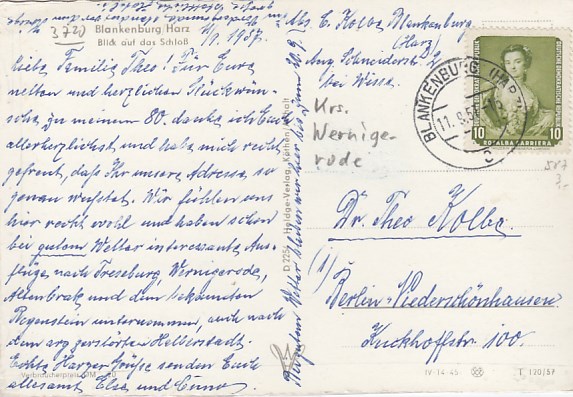 3720
Blankenburg/Harz
Blick auf das Schloß
11.9.1957.
Liebe Familie Theo! Für Eure
netten und herzlichen Glückwün-
sche zu meinem 80. danke ich Euch
allerherzlichst und habe mich recht
gefreut, daß Ihr unsere Adresse so
genau wußtet. Wir fühlen uns
hier recht wohl und haben schon
bei gutem Wetter interessante Aus-
flüge nach Treseburg, Wernigerode,
Altenbrak und dem bekannten
Regenstein unternommen, auch nach
dem arg zerstörten Halberstadt.
Echte Harzer Grüße senden Euch
allesamt Else und Enno
Verbraucherpreis DM
bleiben wir hier bis zum 20.9.
D 2254 Heldge-Verlag, Köthen/Anhalt
Abs. E. Kolbe Blankenburg
(Harz)
bei Wisse
Krs.
Wernige-
rode
BLANKENBURG (HARZ)
11.9.5
C
DEUTSCHE DEMOKRATISCHE REPUBLIK
10 10
ROSALBA CARRIERA
Dr. Theo Kolbe
(1) Berlin-Niederschönhausen
Kuckhoffstr. 100.
IV-14-45
T 120/57